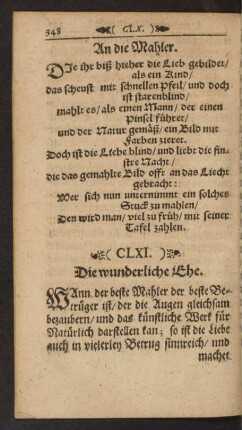 348 ( CLX. )
An die Mahler.
DIe ihr biß hieher die Lieb gebildet/
als ein Kind/
das scheust mit schnellen Pfeil/ und doch
ist starenblind/
mahlt es/ als einen Mann/ der einen
Pinsel führer/
und der Natur gemäß/ ein Bild mit
Farben zieret.
Doch ist die Liebe blind/ und liebt die fin-
stre Nacht/
die das gemahlte Bild offt an das Liecht
gebracht:
Wer sich nun unternimmt ein solches
Stuck zu mahlen/
Den wird man/ viel zu früh/ mit seiner
Tafel zahlen.
( CLXI. )
Die wunderliche Ehe.
WAnn der beste Mahler der beste Be-
trüger ist/ der die Augen gleichsam
bezaubern/ und das künstliche Werk für
Natürlich darstellen kan; so ist die Liebe
auch in vielerley Betrug sinnreich/ und
machet